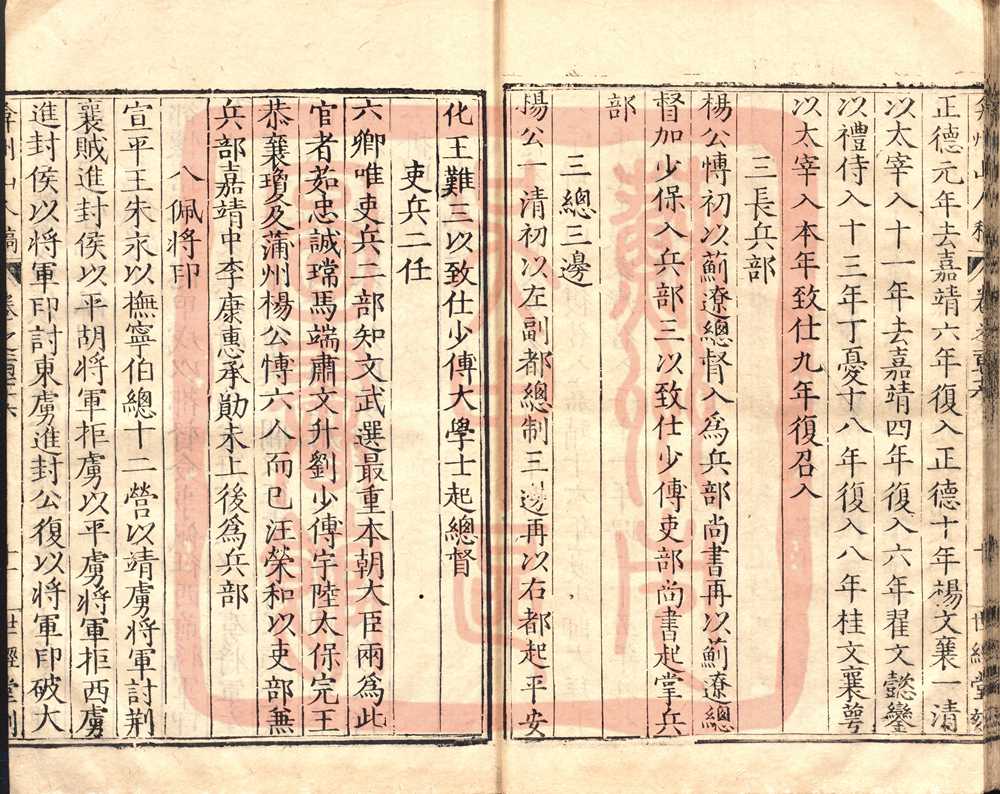 正德元年去嘉靖六年復入正德十年楊文襄一清
以太宰入十一年去嘉靖四年復入六年翟文懿鑾
以禮侍入十三年丁憂十八年復入八年桂文襄萼
以太宰入本年致仕九年復召入
三長兵部
楊公愽初以薊遼總督入為兵部尚書再以薊遼總
督加少保入兵部三以致仕少傅吏部尚書起掌兵
部
三總三邊
楊公一清初以左副都總制三邊再以右都起平安
化王難三以致仕少傅大學士起總督
吏兵二任
六卿唯吏兵二部知文武選最重本朝大臣兩為此
官者茹忠誠瑺馬端肅文升劉少傅宇陸太保完王
恭襄瓊及蒲州楊公愽六人而已汪榮和以吏部兼
兵部嘉靖中李康惠承勛未上後為兵部
八佩將印
宣平王朱永以撫寧伯總十二營以靖虜將軍討荆
襄賊進封侯以平胡將軍拒虜以平虜將軍拒西虜
進封侯以將軍印討東虜進封公復以將軍印破大
弇州山人稿
世經堂刻